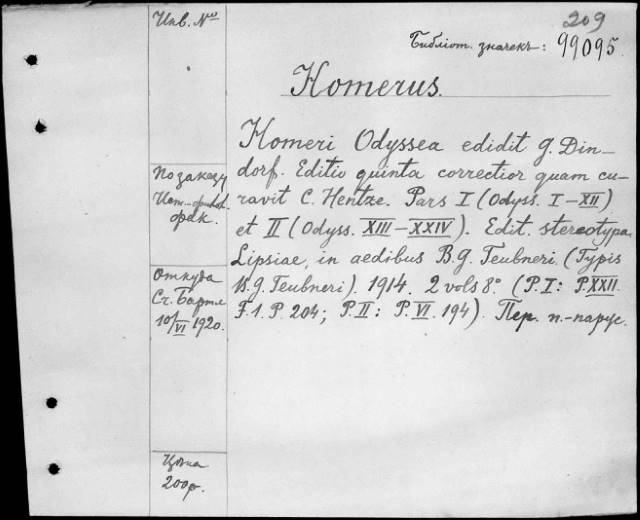 Инв. №
209
Библіот. значекъ: 99095.
Homerus.
Homeri Odyssea edidit G. Din-
dorf. Editio quinta correctior quam cu-
ravit C. Hentze. Pars I (Odyss. I–XII)
et II (Odyss. XIII–XXIV). Edit. stereotypa.
Lipsiae, in aedibus B. G. Teubneri. (Typis
B. G. Teubneri). 1914. 2 vols 8° (P. I: P. XXII.
F. 1. P. 204; P. II: P. VI. 194). Пер. п.-парус.
По заказу
Ист.-филол.
фак.
Откуда
Ст. Барти
10/VI 1920.
Цѣна
200р.